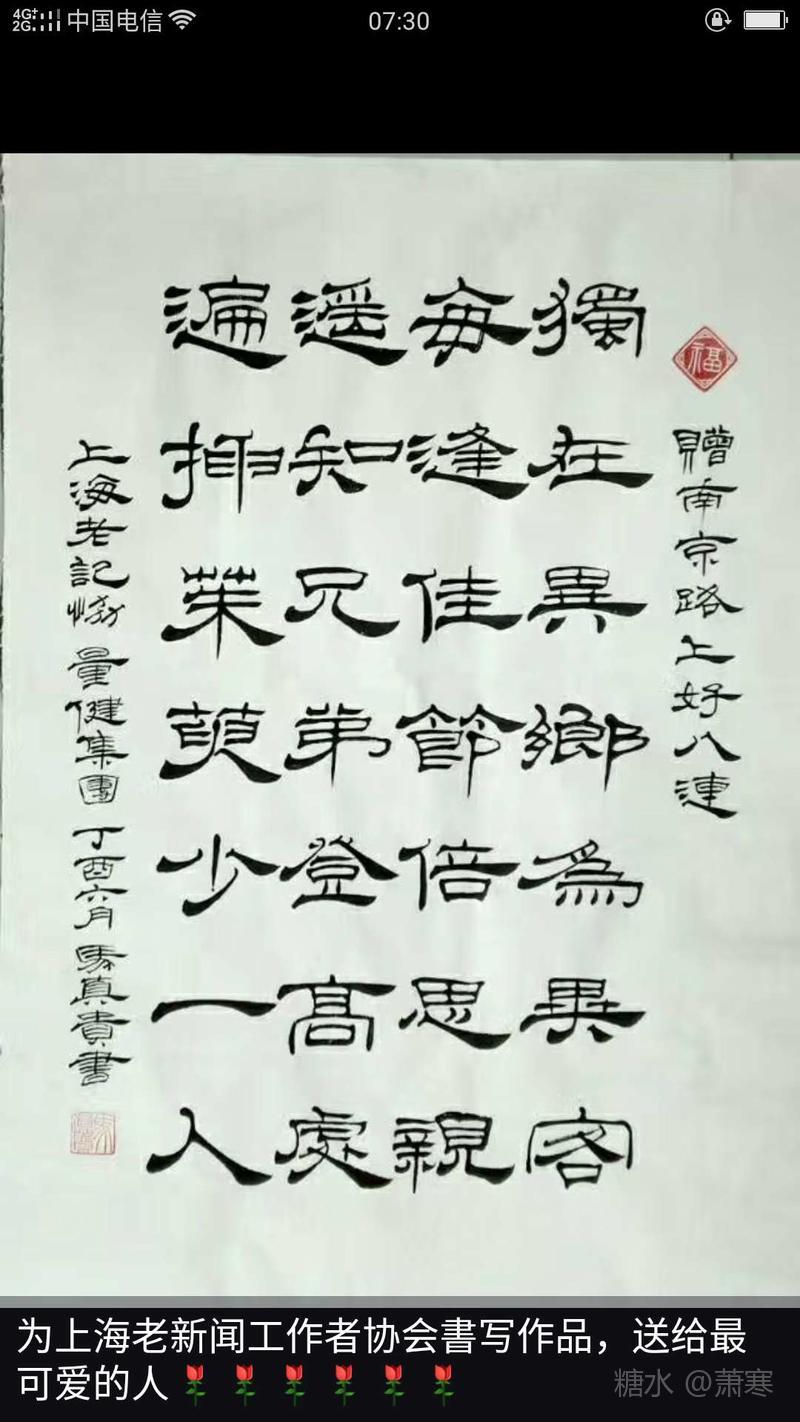 4G+
2G
中国电信
07:30
福
贈南京路上好八連
獨在異鄉為異客
每逢佳節倍思親
遥知兄弟登髙處
遍插茱萸少一人
上海老記恊 量健集團 丁酉六月 馬真貴書
为上海老新闻工作者协会書写作品，送给最
可爱的人🌹🌹🌹🌹🌹🌹
糖水 @萧寒